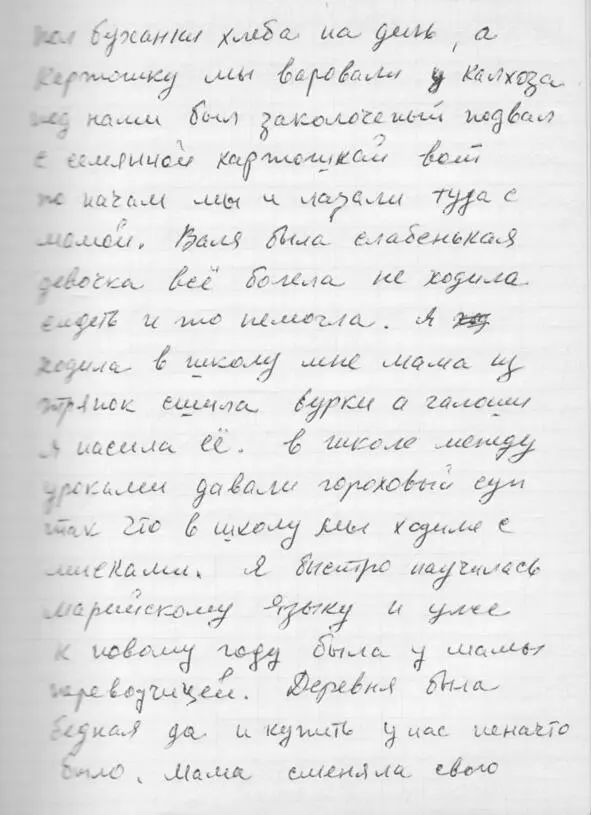 пол буханки хлеба на день, а
картошку мы варовали у калхоза
под нами был заколоченый подвал
с семяной картошкай вот
по начам мы и лазали туда с
мамой. Валя была слабенькая
девочка всё болела не ходила
сидеть и то немогла. Я
ходила в школу мне мама из
тряпок сшила бурки а галоши
я насила её. в школе между
уроками давали гороховый суп
так что в школу мы ходили с
мисками. Я быстро научилась
марийскому языку и уже
к новому году была у мамы
переводчицей. Деревня была
бедная да и купить у нас неначто
было. Мама сменяла свою